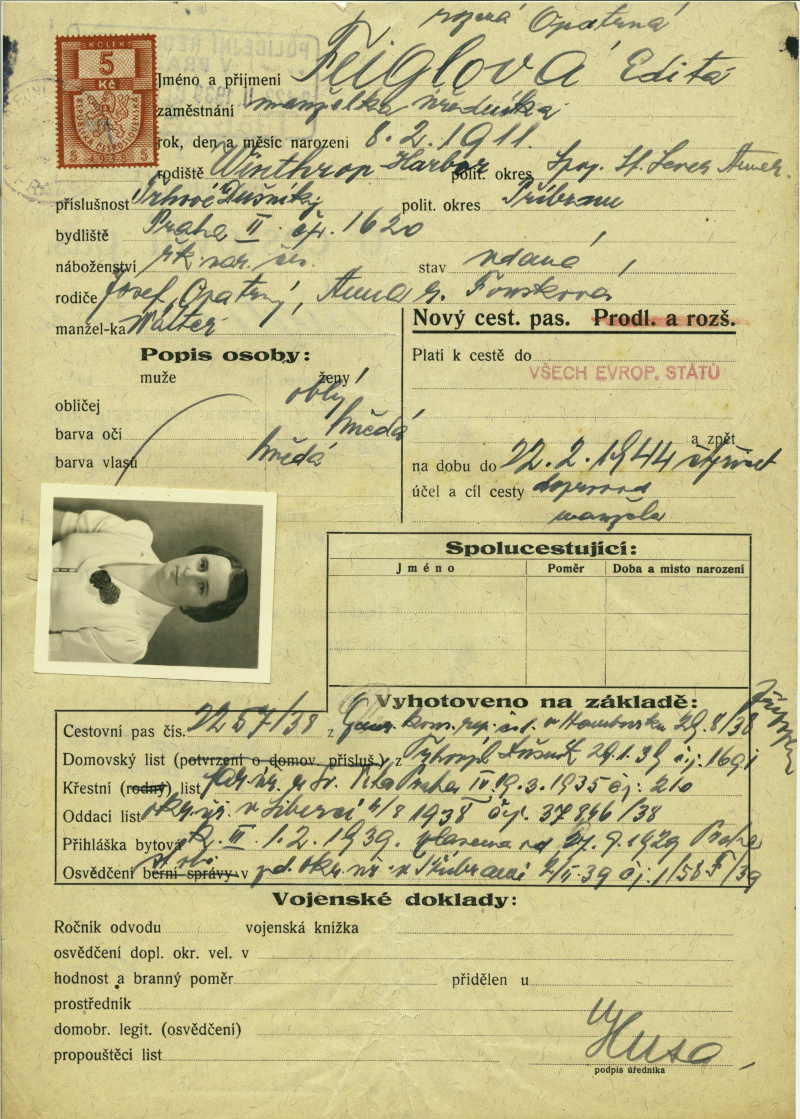 Opatrná
KOLEK
5
Kč
REPUBLIKA ČESKOSLOVENSKÁ
Jméno a příjmení Feiglová Edita
zaměstnání manželka úředníka
rok, den a měsíc narození 8.2.1911.
rodiště Winthrop Harbor polit. okres Spoj. St. Sever. Amer.
příslušnost Trhové Dušníky polit. okres Příbram
bydliště Praha II čp. 1620
náboženství stav vdaná
rodiče Josef Opatrný, Anna r.
manžel-ka Walter
Nový cest. pas. Prodl. a rozš.
Popis osoby:
muže ženy
Platí k cestě do
VŠECH EVROP. STÁTŮ
obličej oblý
barva očí hnědá
barva vlasů hnědá
a zpět
na dobu do 22.2.1944
účel a cíl cesty doprovod
manžela
Spolucestující:
Jméno Poměr Doba a místo narození
Vyhotoveno na základě:
Cestovní pas čís. 2257/38 z Gen. v Hamburku 29/8/38
Domovský list (potvrzení o domov. přísluš.) z 29.1.39 č.j. 1691
Křestní (rodný) list far. úř. u Sv. Praha IV 19.3.1935 čj. 210
Oddací list okr. úř. v Liberci 1938 čj. 37846/38
Přihláška bytová P. II 1.2.1939. hlášena od 27.9.1929 Praha
Osvědčení berní správy v okr. úř. v Příbrami 39 čj. 1/58 F/39
Vojenské doklady:
Ročník odvodu vojenská knížka
osvědčení dopl. okr. vel. v
hodnost a branný poměr přidělen u
prostředník
domobr. legit. (osvědčení)
propouštěcí list
Husa
podpis úředníka